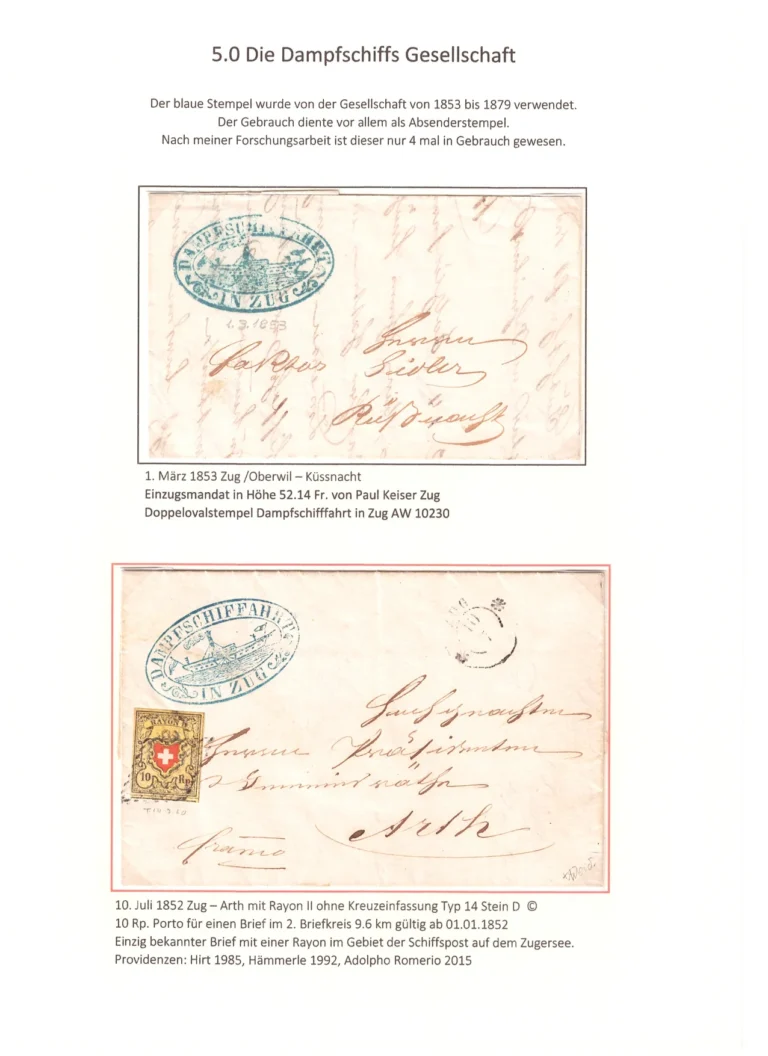 5.0 Die Dampfschiffs Gesellschaft
Der blaue Stempel wurde von der Gesellschaft von 1853 bis 1879 verwendet.
Der Gebrauch diente vor allem als Absenderstempel.
Nach meiner Forschungsarbeit ist dieser nur 4 mal in Gebrauch gewesen.
DAMPFSCHIFFAHRT
IN ZUG
1.3.1853
Herrn
Faktor Sidler
Küßnacht
1. März 1853 Zug /Oberwil – Küssnacht
Einzugsmandat in Höhe 52.14 Fr. von Paul Keiser Zug
Doppelovalstempel Dampfschifffahrt in Zug AW 10230
DAMPFSCHIFFAHRT
IN ZUG
ZUG
10
RAYON II
10 Rp.
Herren Präsidenten
Arth
franco
10. Juli 1852 Zug – Arth mit Rayon II ohne Kreuzeinfassung Typ 14 Stein D ©
10 Rp. Porto für einen Brief im 2. Briefkreis 9.6 km gültig ab 01.01.1852
Einzig bekannter Brief mit einer Rayon im Gebiet der Schiffspost auf dem Zugersee.
Providenzen: Hirt 1985, Hämmerle 1992, Adolpho Romerio 2015